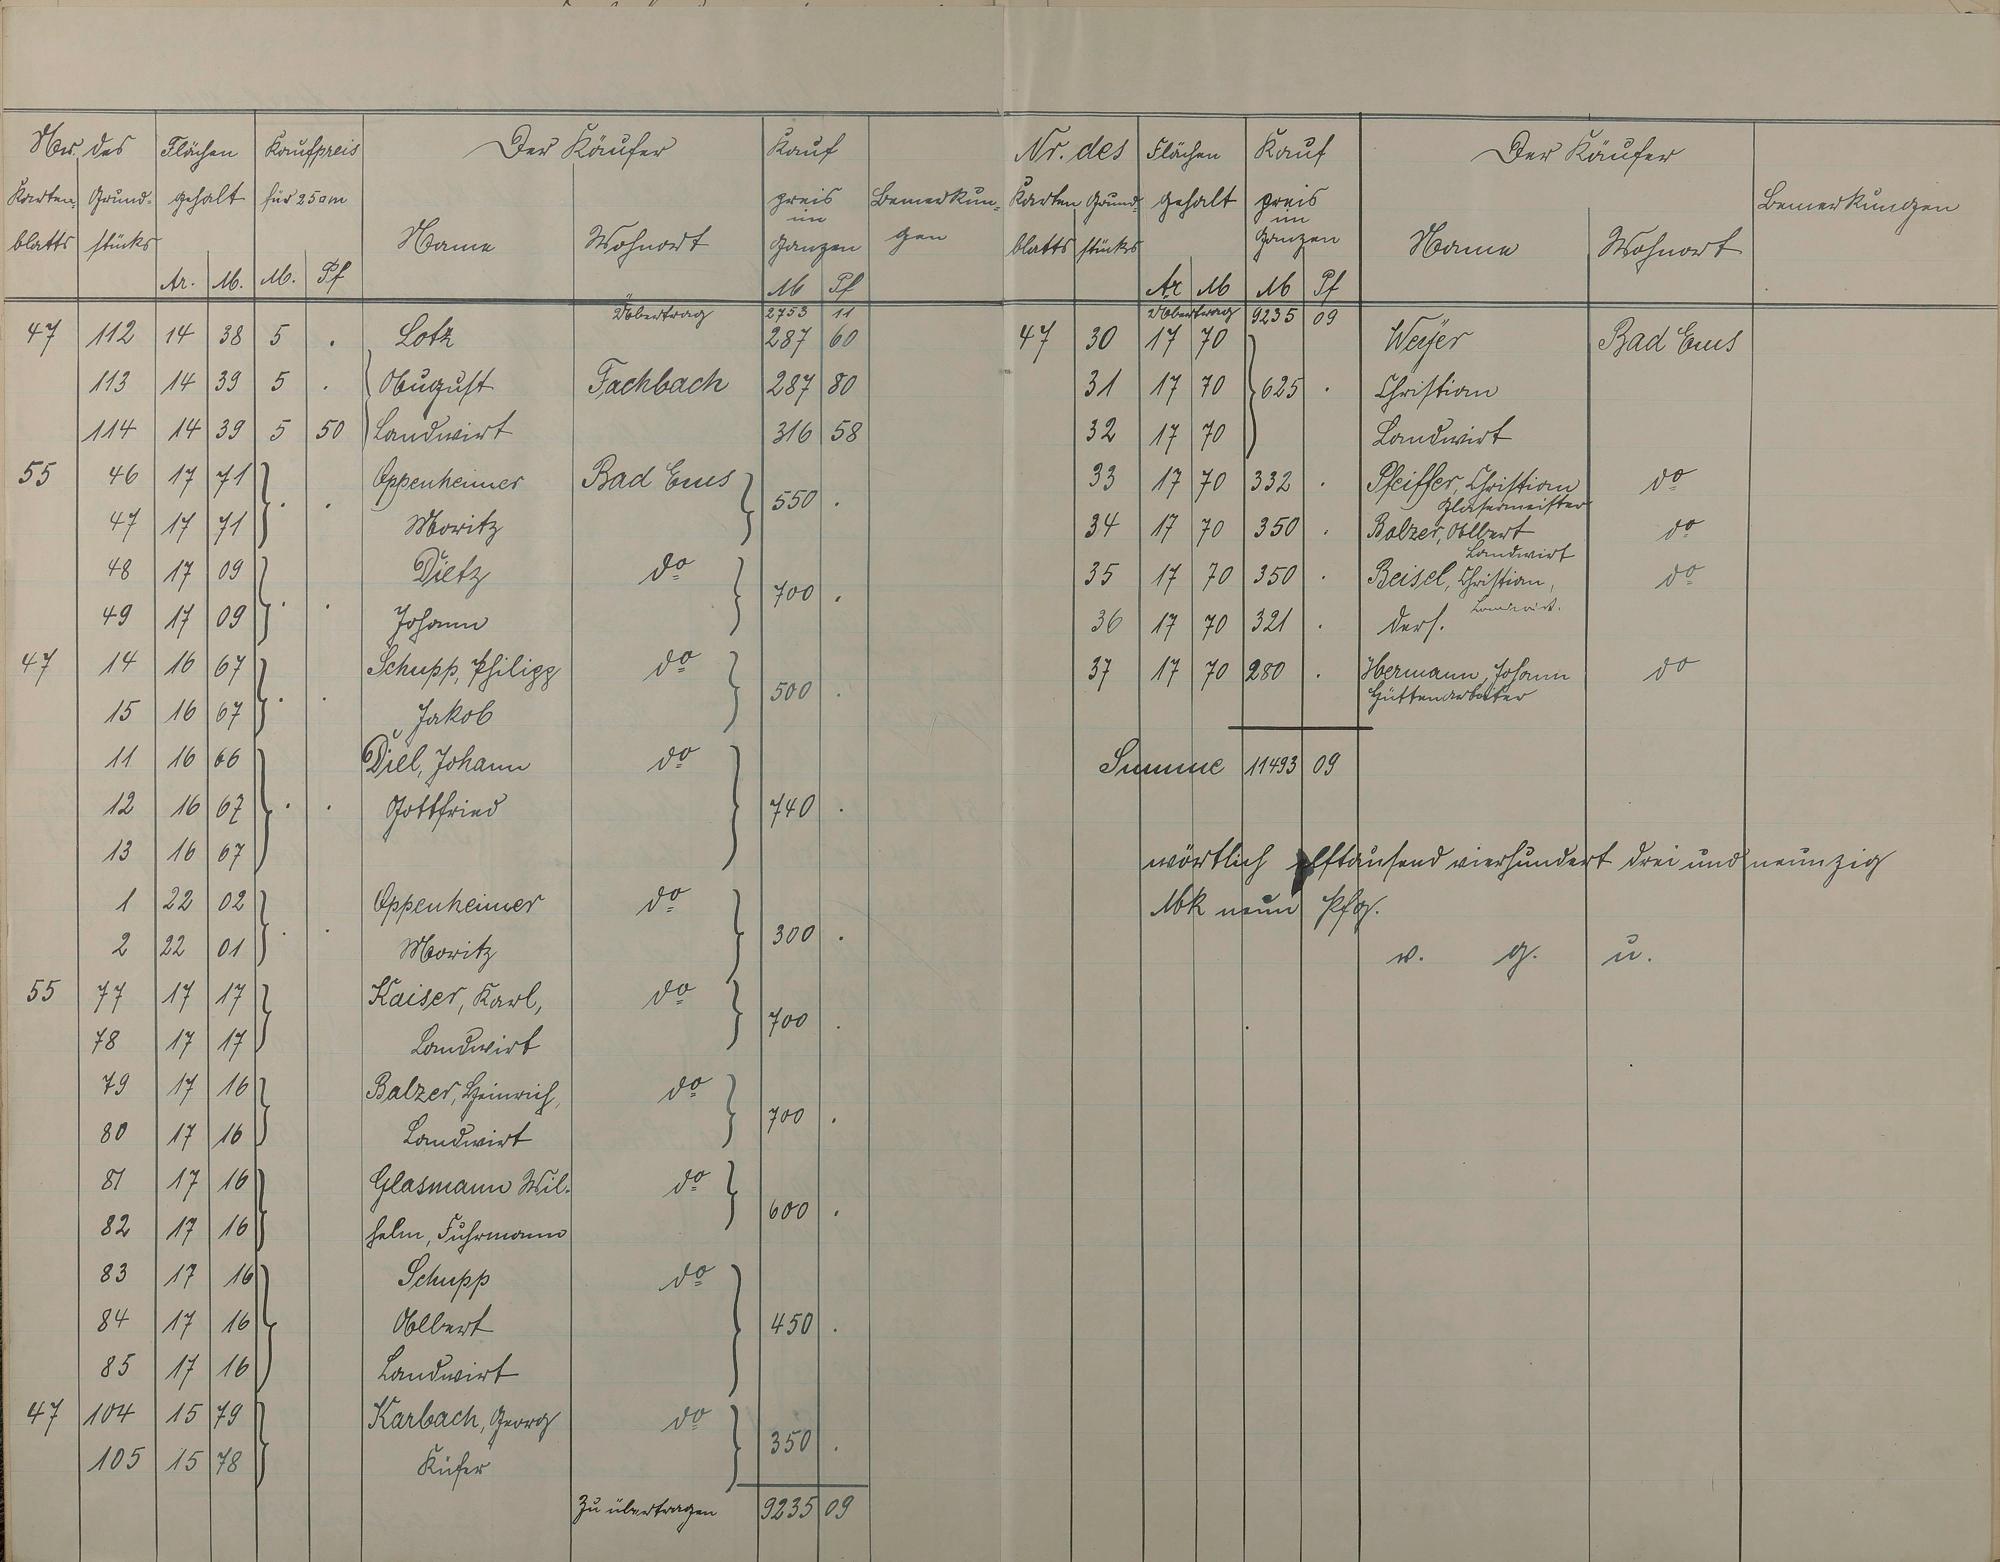 Nr. des Flächen Kaufpreis Der Käufer Kauf
Karten- Grund- gehalt für 250 m preis Bemerkun-
blatts stücks Name Wohnort im Ganzen gen
Ar. M. M. Pf M Pf
Übertrag 2753 11
47 112 14 38 5 . Lotz 287 60
113 14 39 5 . August Fachbach 287 80
114 14 39 5 50 Landwirt 316 58
55 46 17 71 . . Oppenheimer Bad Ems 550 .
47 17 71 Moritz
48 17 09 . . Dietz do 700 .
49 17 09 Johann
47 14 16 67 . . Schupp, Philipp do 500 .
15 16 67 Jakob
11 16 66 Diel, Johann do
12 16 67 . . Gottfried 740 .
13 16 67
1 22 02 . . Oppenheimer do 300 .
2 22 01 Moritz
55 77 17 17 Kaiser, Karl, do 700 .
78 17 17 Landwirt
79 17 16 Balzer, Heinrich, do 700 .
80 17 16 Landwirt
81 17 16 Glasmann Wil- do 600 .
82 17 16 helm, Fuhrmann
83 17 16 Schupp do
84 17 16 Albert 450 .
85 17 16 Landwirt
47 104 15 79 Karbach, Georg do 350 .
105 15 78 Küfer
Zu übertragen 9235 09
Nr. des Flächen Kauf Der Käufer
Karten Grund- gehalt preis Bemerkungen
blatts stücks im Ganzen Name Wohnort
Ar M M Pf
Übertrag 9235 09
47 30 17 70 Weyer Bad Ems
31 17 70 625 . Christian
32 17 70 Landwirt
33 17 70 332 . Pfeiffer, Christian do
Glasermeister
34 17 70 350 . Balzer, Albert do
Landwirt
35 17 70 350 . Beisel, Christian, do
Landwirt.
36 17 70 321 . ders.
37 17 70 280 . Hermann, Johann do
Hüttenarbeiter
Summe 11493 09
wörtlich elftausend vierhundert drei und neunzig
Mk neun Pfg.
v. g. u.